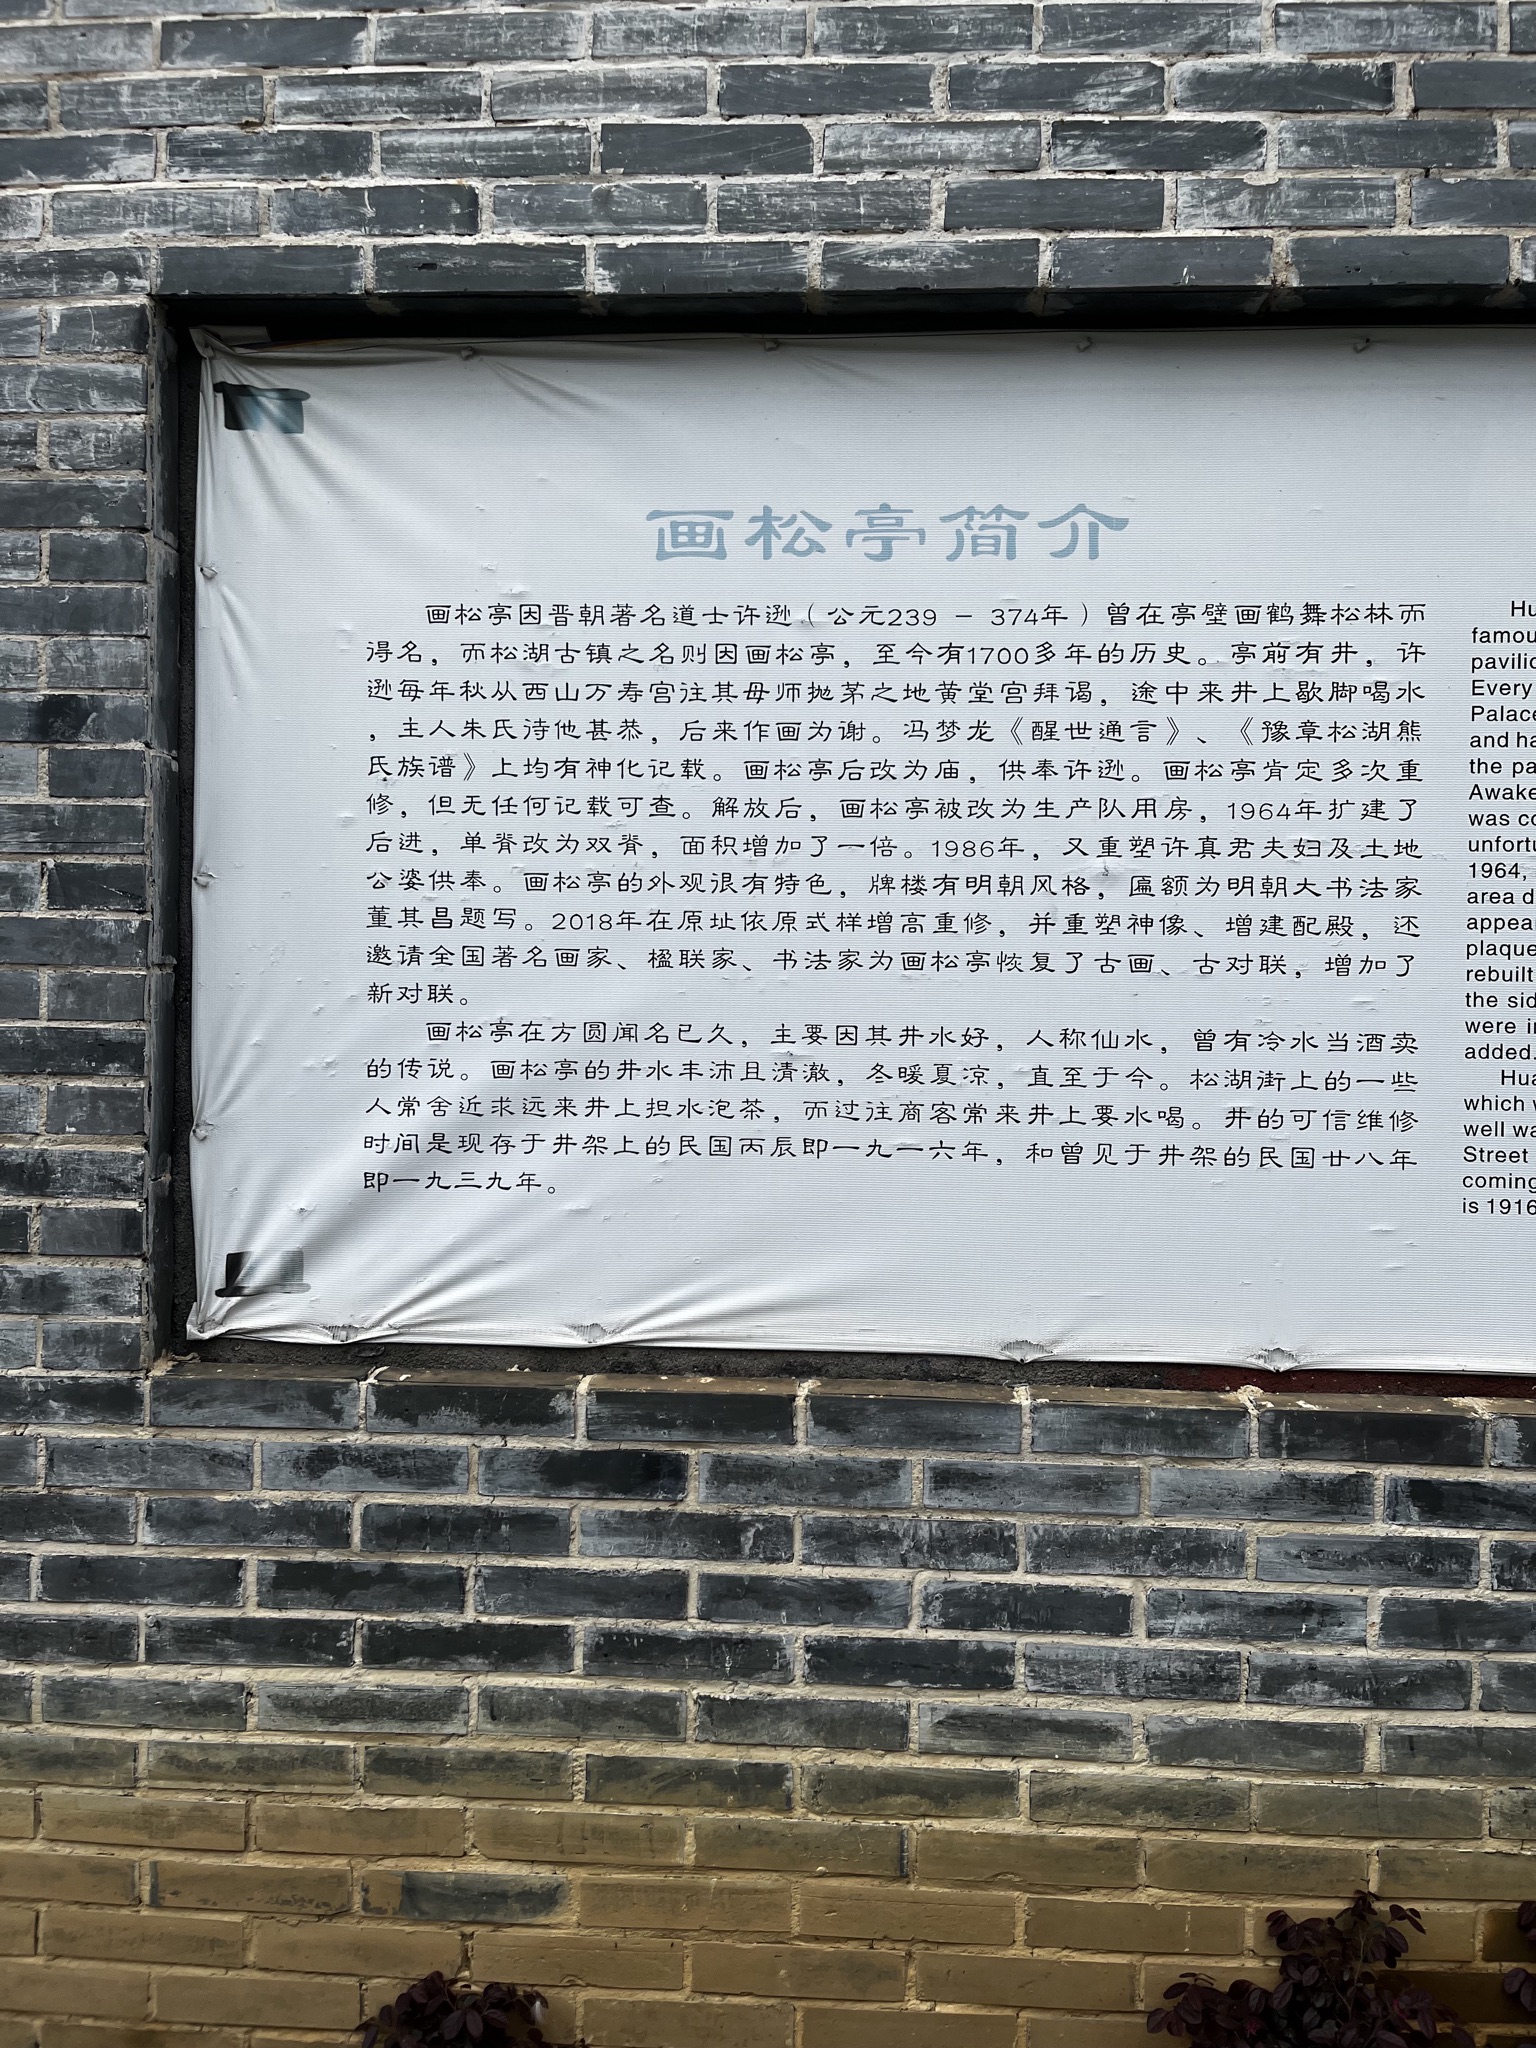 画松亭简介
画松亭因晋朝著名道士许逊（公元239 - 374年）曾在亭壁画鹤舞松林而
得名，而松湖古镇之名则因画松亭，至今有1700多年的历史。亭前有井，许
逊每年秋从西山万寿宫往其母师抛茅之地黄堂宫拜谒，途中来井上歇脚喝水
，主人朱氏待他甚恭，后来作画为谢。冯梦龙《醒世通言》、《豫章松湖熊
氏族谱》上均有神化记载。画松亭后改为庙，供奉许逊。画松亭肯定多次重
修，但无任何记载可查。解放后，画松亭被改为生产队用房，1964年扩建了
后进，单脊改为双脊，面积增加了一倍。1986年，又重塑许真君夫妇及土地
公婆供奉。画松亭的外观很有特色，牌楼有明朝风格，匾额为明朝大书法家
董其昌题写。2018年在原址依原式样增高重修，并重塑神像、增建配殿，还
邀请全国著名画家、楹联家、书法家为画松亭恢复了古画、古对联，增加了
新对联。
画松亭在方圆闻名已久，主要因其井水好，人称仙水，曾有冷水当酒卖
的传说。画松亭的井水丰沛且清澈，冬暖夏凉，直至于今。松湖街上的一些
人常舍近求远来井上担水泡茶，而过往商客常来井上要水喝。井的可信维修
时间是现存于井架上的民国丙辰即一九一六年，和曾见于井架的民国廿八年
即一九三九年。
Hu
famou
pavilio
Every
Palace
and ha
the pa
Awake
was co
unfortu
1964,
area d
appear
plaque
rebuilt
the sid
were in
added.
Hua
which w
well wa
Street
coming
is 1916